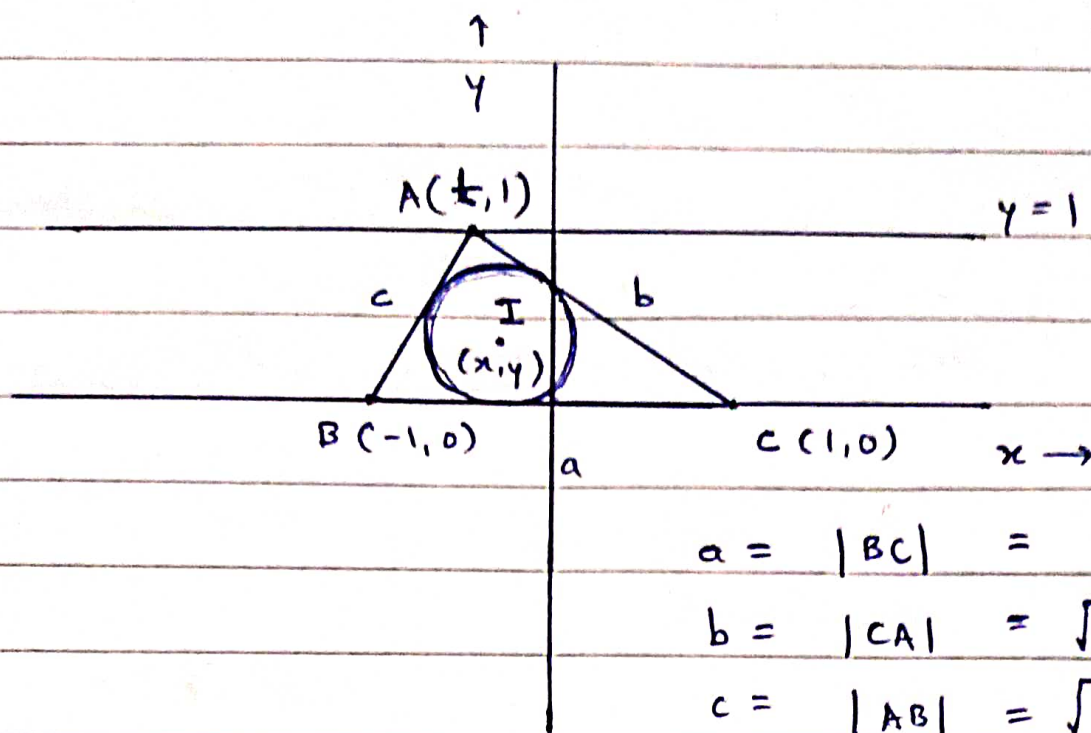 ↑
Y
A(t,1)
y = 1
c
b
I
(x,y)
B (-1, 0)
C (1, 0)
x →
a
a = |BC| =
b = |CA| = √
c = |AB| = √